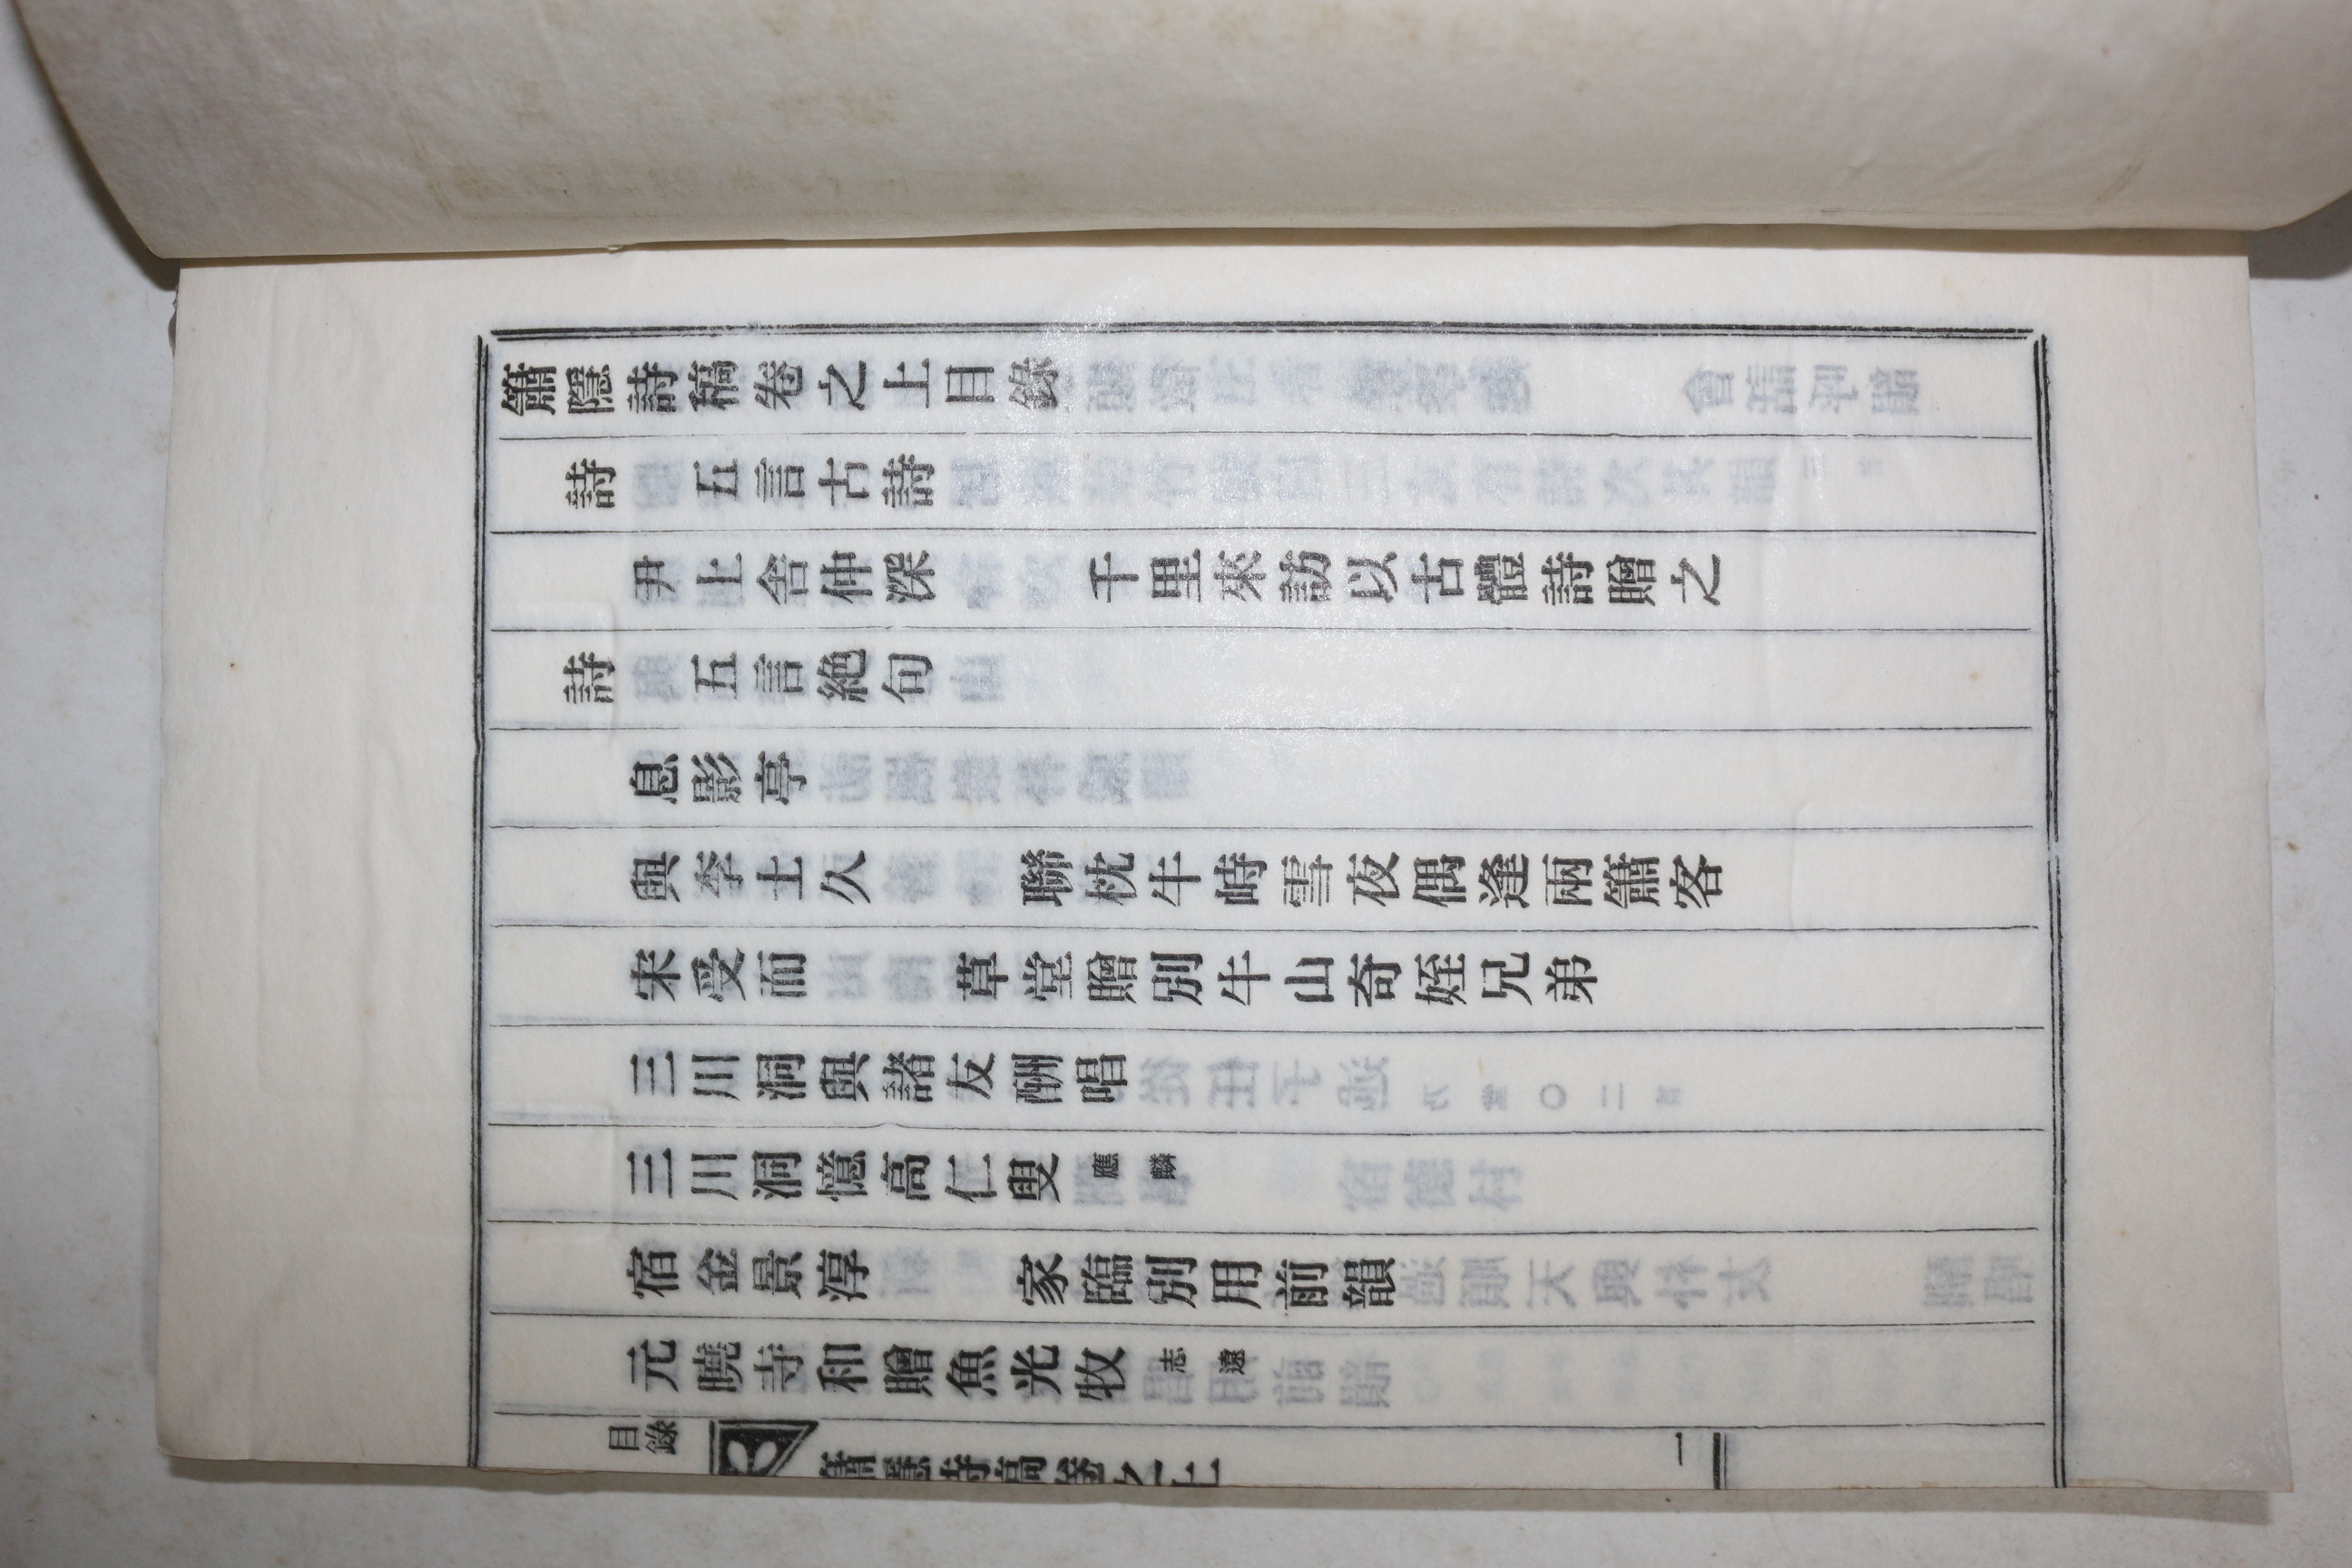 簫隱詩稿卷之上目錄
詩 五言古詩
尹上舍仲深 千里來訪以古體詩贈之
詩 五言絶句
息影亭
與李士久 聯枕牛峙雪夜偶逢兩簫客
宋受而 草堂贈別牛山奇姪兄弟
三川洞與諸友酬唱
三川洞憶高仁叟 應麟
宿金景淳 家臨別用前韻
元曉寺和贈魚光牧 志遠
目錄 簫隱詩稿卷之上 一